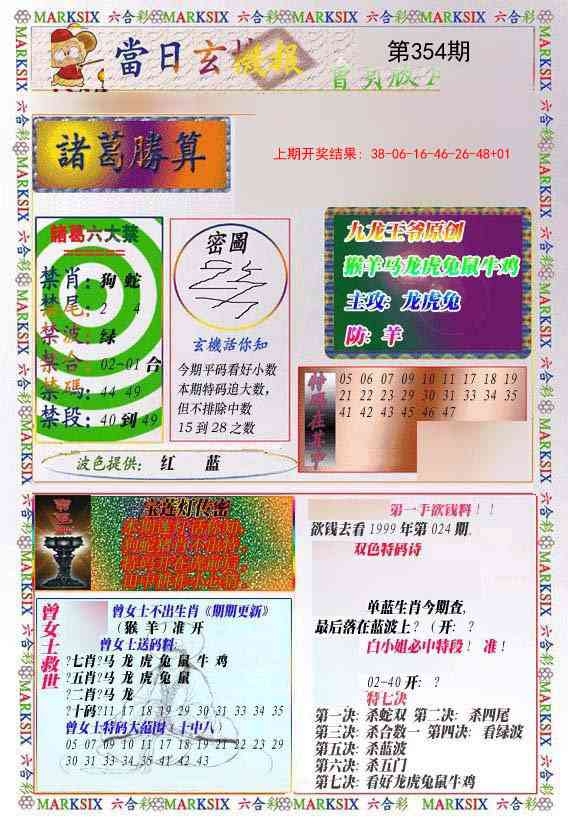 MARKSIX 六合彩 MARKSIX 六合彩 MARKSIX 六合彩 MARKSIX 六合彩 MARKSIX 六合彩
當日玄机
微报
第354期
諸葛勝算
上期开奖结果：38-06-16-46-26-48+01
諸葛六大禁
禁肖：狗 蛇
禁尾：2 4
禁波：绿
禁合：02-01 合
禁碼：44 49
禁段：40 到 49
密圖
玄機活你知
今期平码看好小数
本期特码追大数，
但不排除中数
15 到 28 之数
九龙王爷原创
猴羊马龙虎兔鼠牛鸡
主攻：龙虎兔
防：羊
特碼在其中
05 06 07 09 10 11 17 18 19
21 22 23 29 30 31 33 34 35
41 42 43 45 46 47
波色提供： 红 蓝
宝莲灯传密
曾女士救世
曾女士不出生肖《期期更新》
（猴 羊）准 开
曾女士送码料：
?七肖?马 龙 虎 兔 鼠 牛 鸡
?五肖?马 龙 虎 兔 鼠
?二肖?马 龙
?十码?11 17 18 19 29 30 31 33 34 35
曾女士特码大范围（十中八）
05 07 09 10 11 17 18 19 21 22 23 29
30 31 33 34 35 41 42 43
第一手欲钱料！！
欲钱去看 1999 年第 024 期.
双色特码诗
单蓝生肖今期查，
最后落在蓝波上？（开：？
白小姐必中特段！ 准！
02-40 开：？
特七决
第一决：杀蛇双 第二决：杀四尾
第三决：杀合数一 第四决：看绿波
第五决：杀蓝波
第六决：杀五门
第七决：看好龙虎兔鼠牛鸡
MARKSIX 六合彩 MARKSIX 六合彩 MARKSIX 六合彩 MARKSIX 六合彩 MARKSIX 六合彩